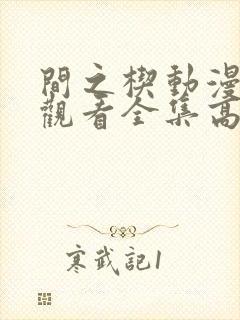 間之楔動漫
觀看全集高
寒武記1